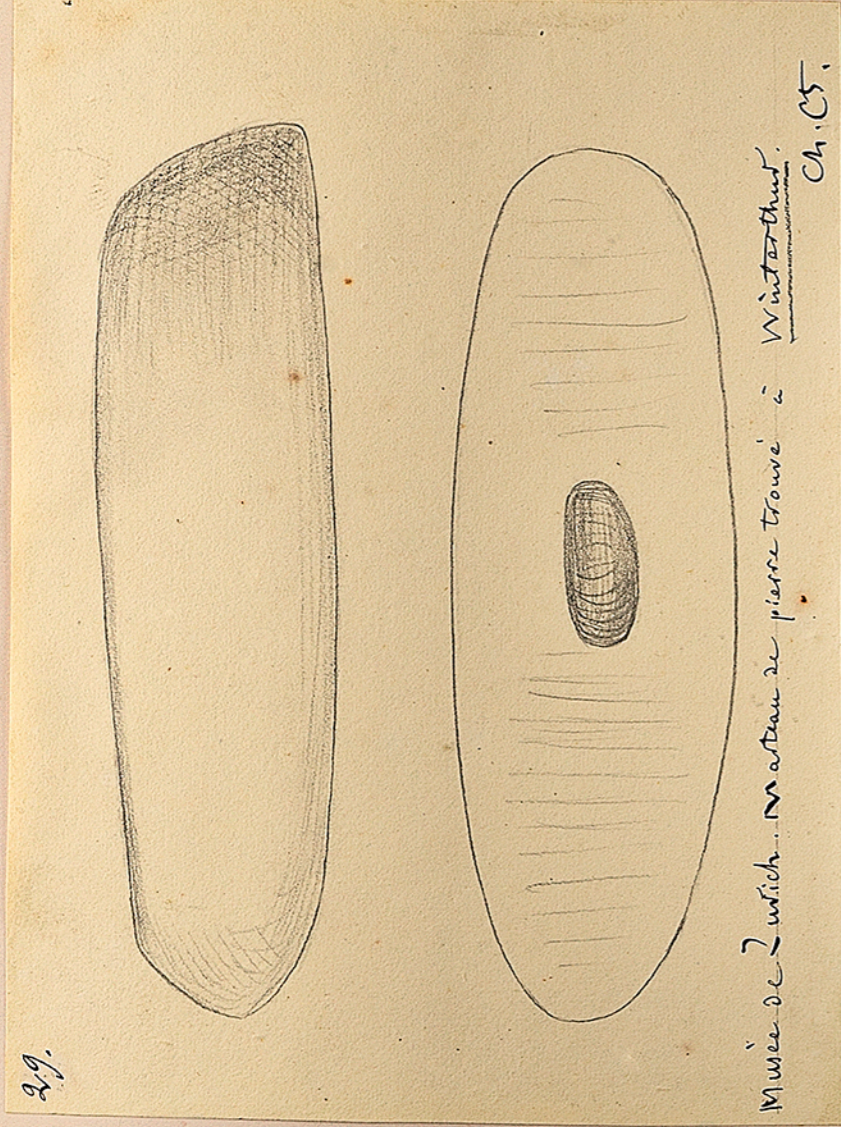 29.
Musée de Zurich. Marteau de pierre trouvé à Winterthur.
Ch. C5.